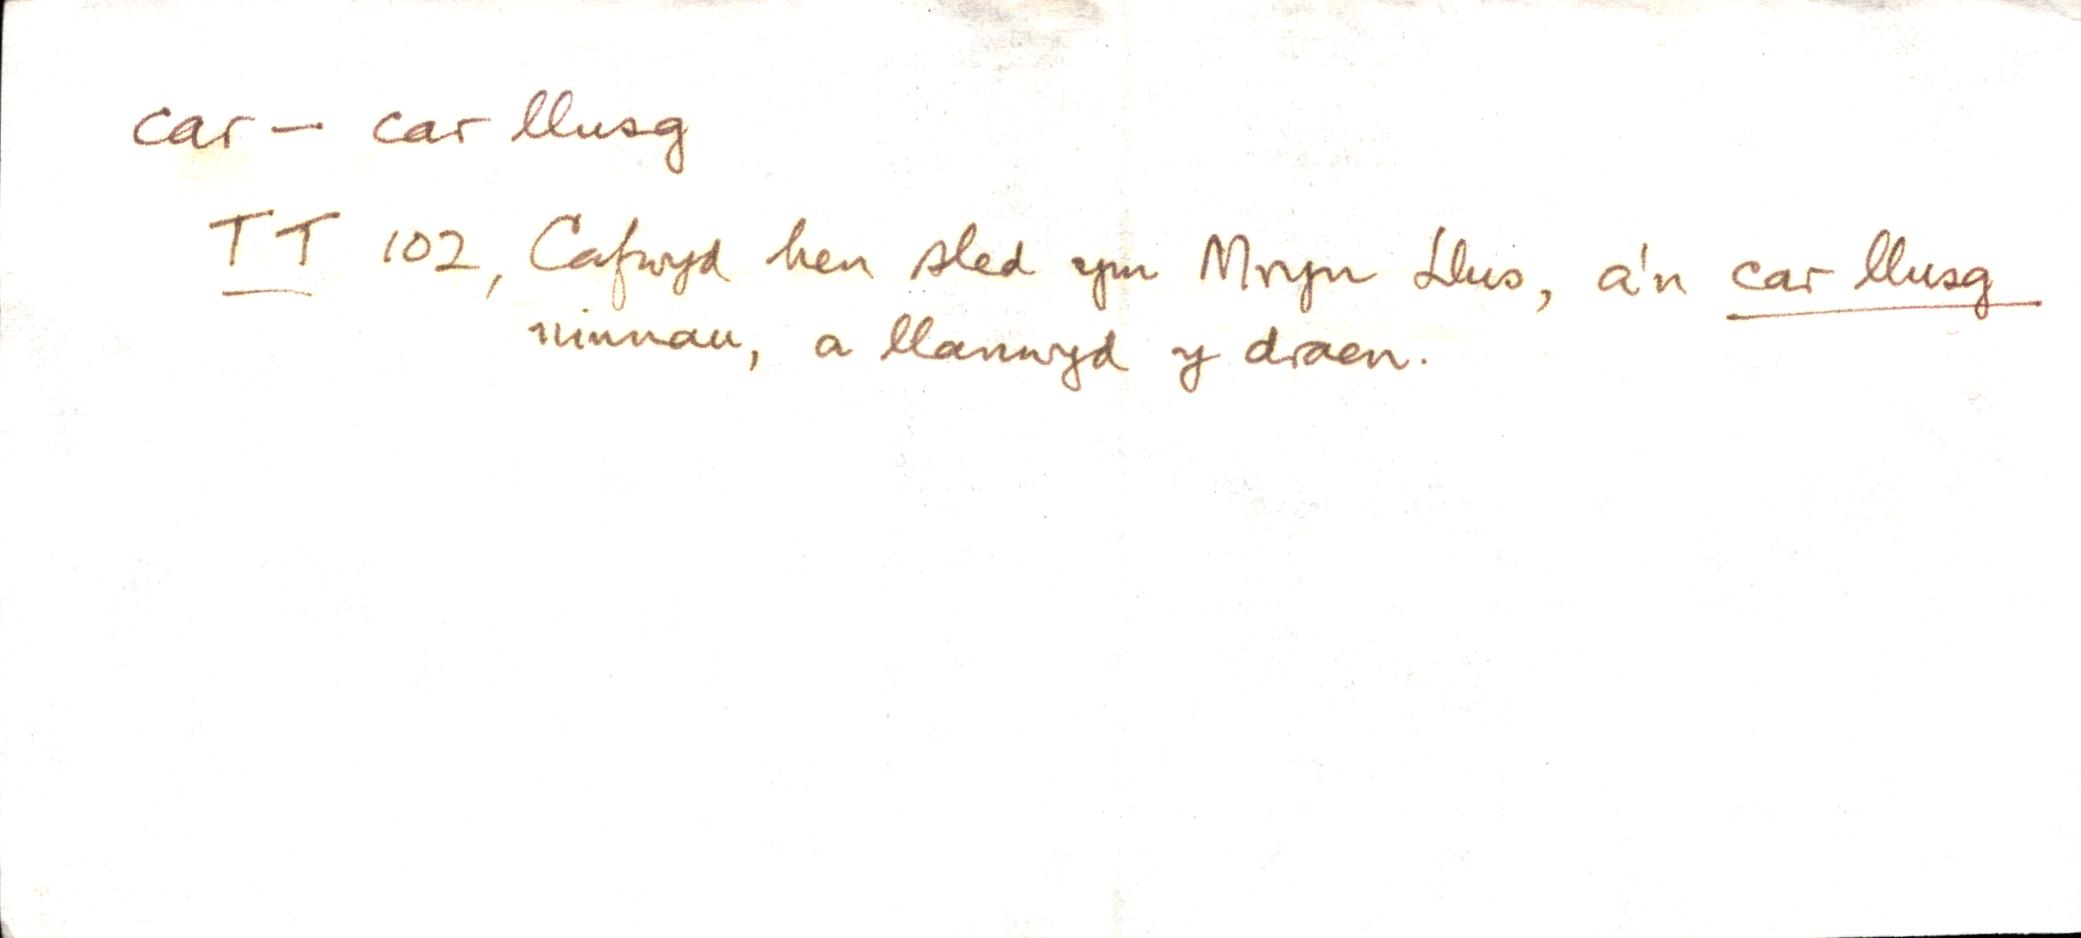 car — car llusg
TT 102, Cafwyd hen sled ym Mryn Llus, a'n car llusg
ninnau, a llanwyd y draen.